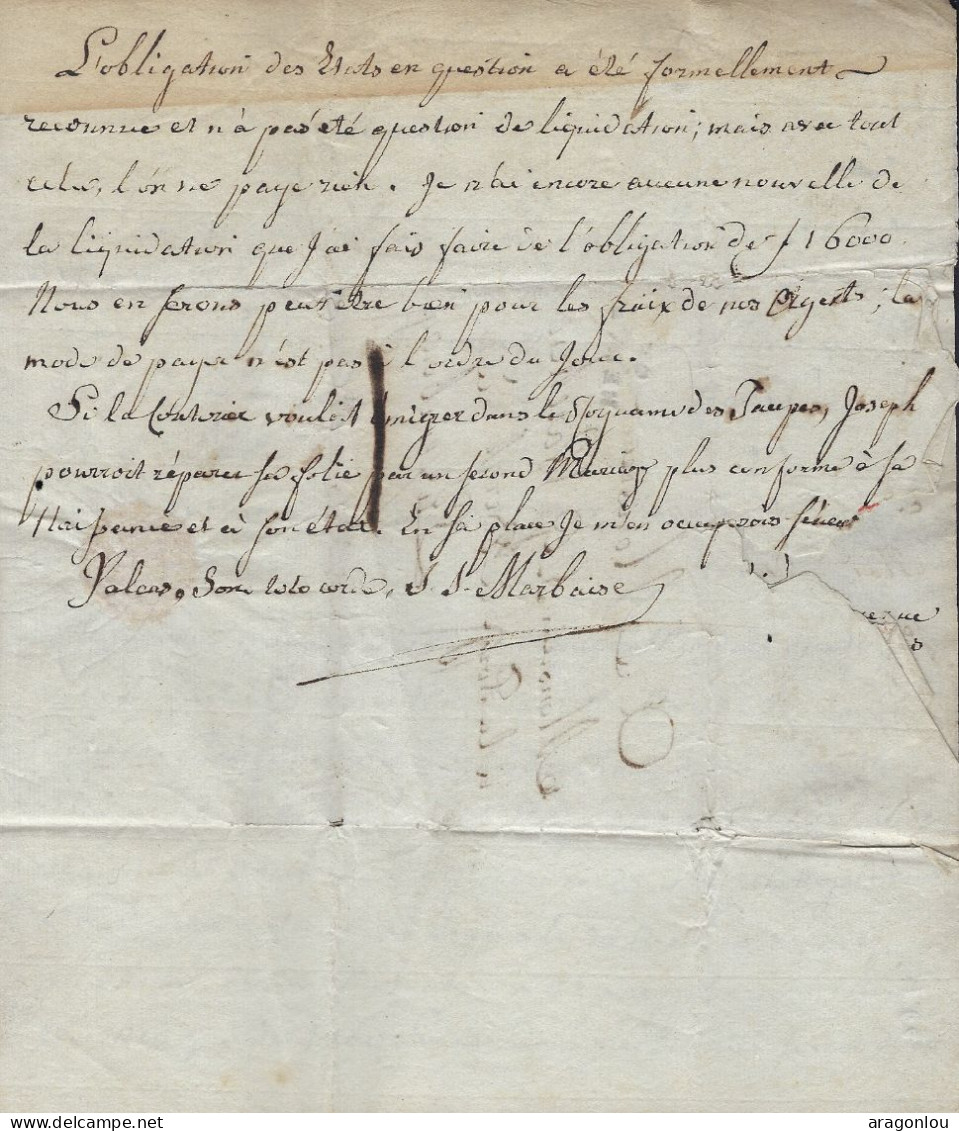 L'obligation des Etats en question a été formellement
reconnue et n'à pas été question de liquidation; mais avec tout
cela, l'on ne paye rien. Je n'ai encore aucune nouvelle de
la liquidation que J'ai fais faire de l'obligation de f 16000.
Nous en serons peut être bien pour les fraix de nos Agents; la
mode de payer n'est pas à l'ordre du Jour.
Si la Couturier vouloit émigrer dans le Royaume des Taupes, Joseph
pourroit réparer sa folie par un second Mariage plus conforme à sa
Naissance et à son état. En sa place Je m'en occuperois
Valeas, . S. S. Marbaise
aragonlou